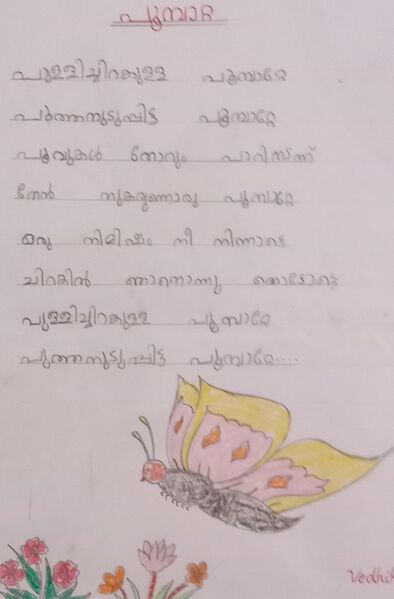 പൂമ്പാറ്റ
പുള്ളിച്ചിറകുള്ള പൂമ്പാറ്റേ
പുത്തനുടുപ്പിട്ട പൂമ്പാറ്റേ
പൂവുകൾ തോറും പാറിനടന്ന്
തേൻ നുകരുന്നൊരു പൂമ്പാറ്റേ
ഒരു നിമിഷം നീ നിന്നാട്ടെ
ചിറകിൽ ഞാനൊന്നു തൊട്ടോട്ടെ
പുള്ളിച്ചിറകുള്ള പൂമ്പാറ്റേ
പുത്തനുടുപ്പിട്ട പൂമ്പാറ്റേ....